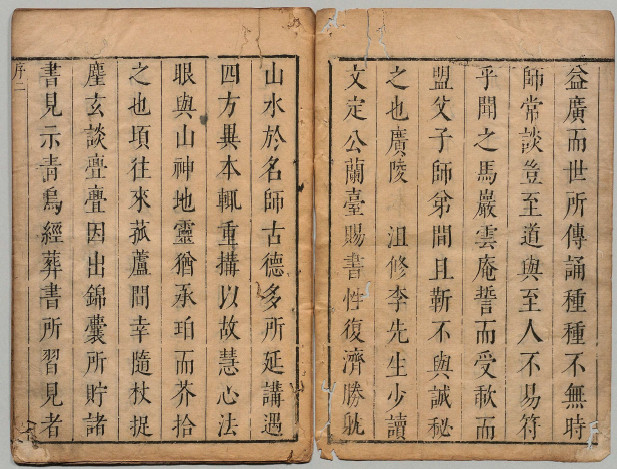 益廣而世所傳誦種種不無時
師常談豈至道與至人不易符
乎聞之馬巖雲庵誓而受歃而
盟父子師弟間且靳不與誠秘
之也廣陵　沮修李先生少讀
文定公蘭臺賜書性復濟勝躭
山水於名師古德多所延講遇
四方異本輒重搆以故慧心法
眼與山神地靈猶承珀而芥拾
之也頃往來菰蘆間幸隨杖捉
麈玄談亹亹因出錦囊所貯諸
書見示青烏經葬書所習見者
序二